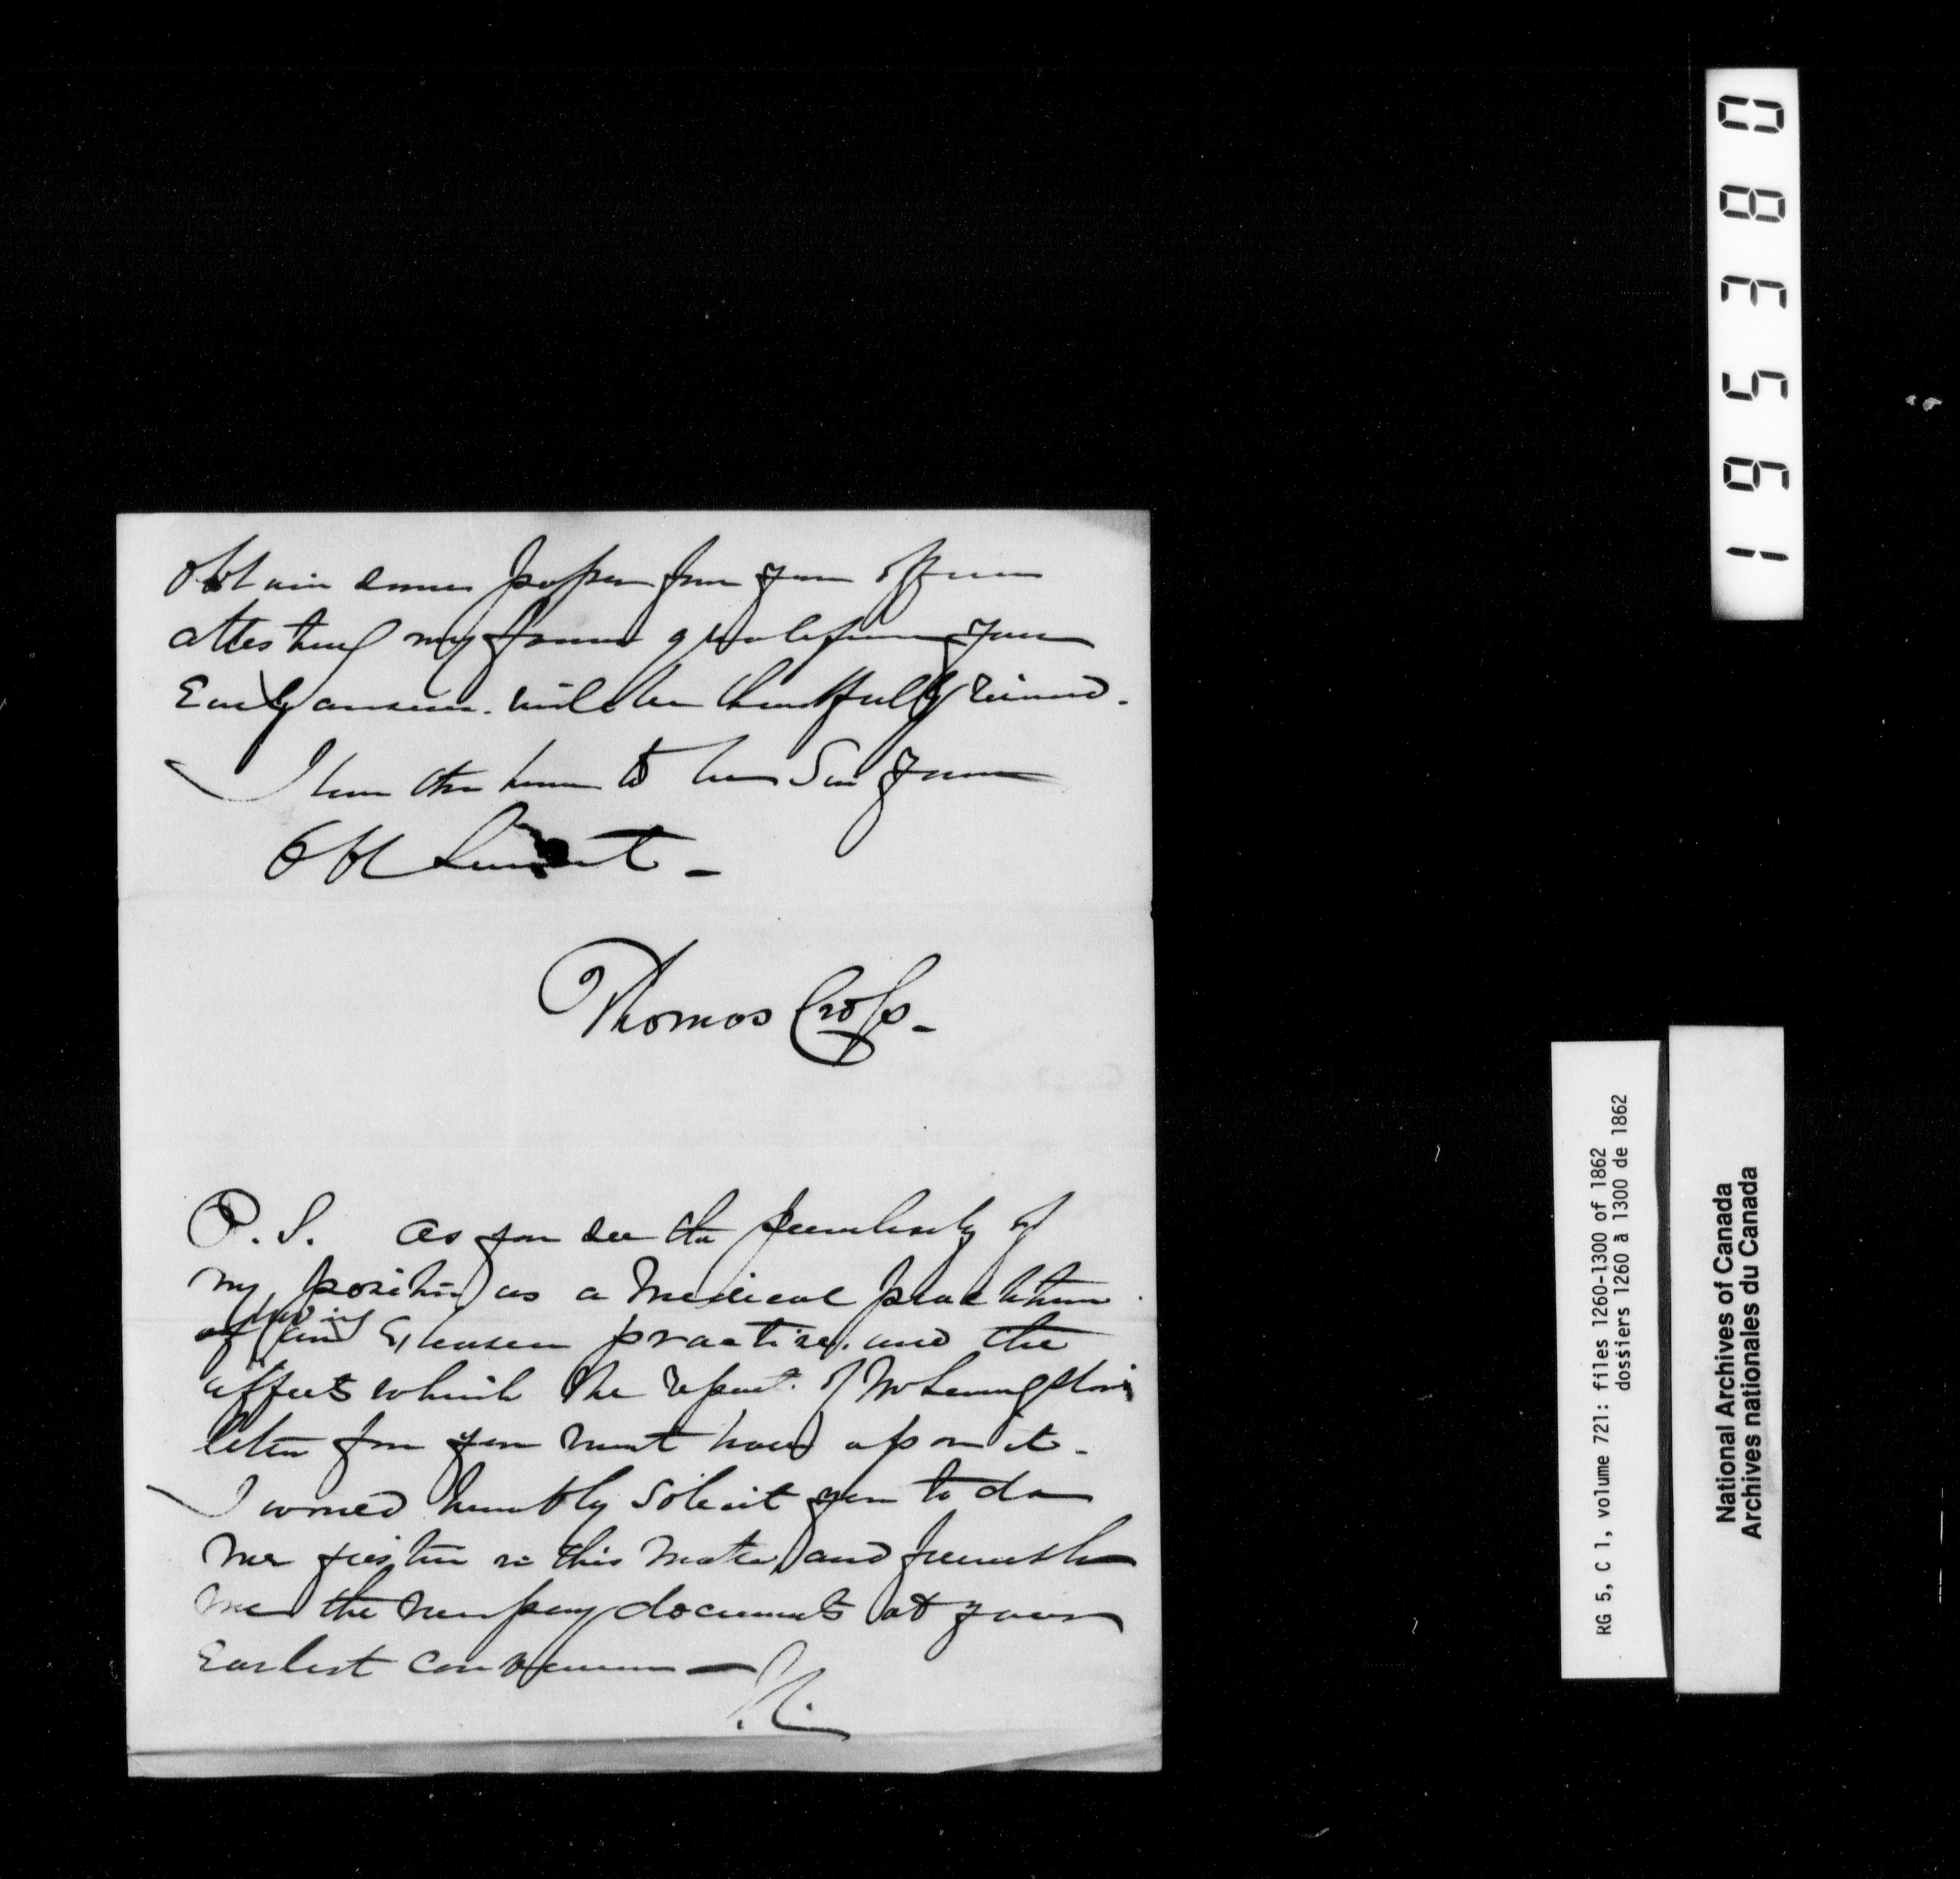 obtain some papers from your office
attesting my former your
Early answer will be thankfully received.
I have the honor to be Sir your
Obt Servant -
Thomas Cross -
P. S. As you see the peculiarity of
my position as a Medical practitioner
having an Extensive practise, and the
affects which the report of
letter from you must have upon it -
I would humbly solicit you to do
me justice in this matter and furnish
me the necessary documents at your
Earliest convenience -
195380
RG 5, C 1, volume 721: files 1260-1300 of 1862
dossiers 1260 à 1300 de 1862
National Archives of Canada
Archives nationales du Canada